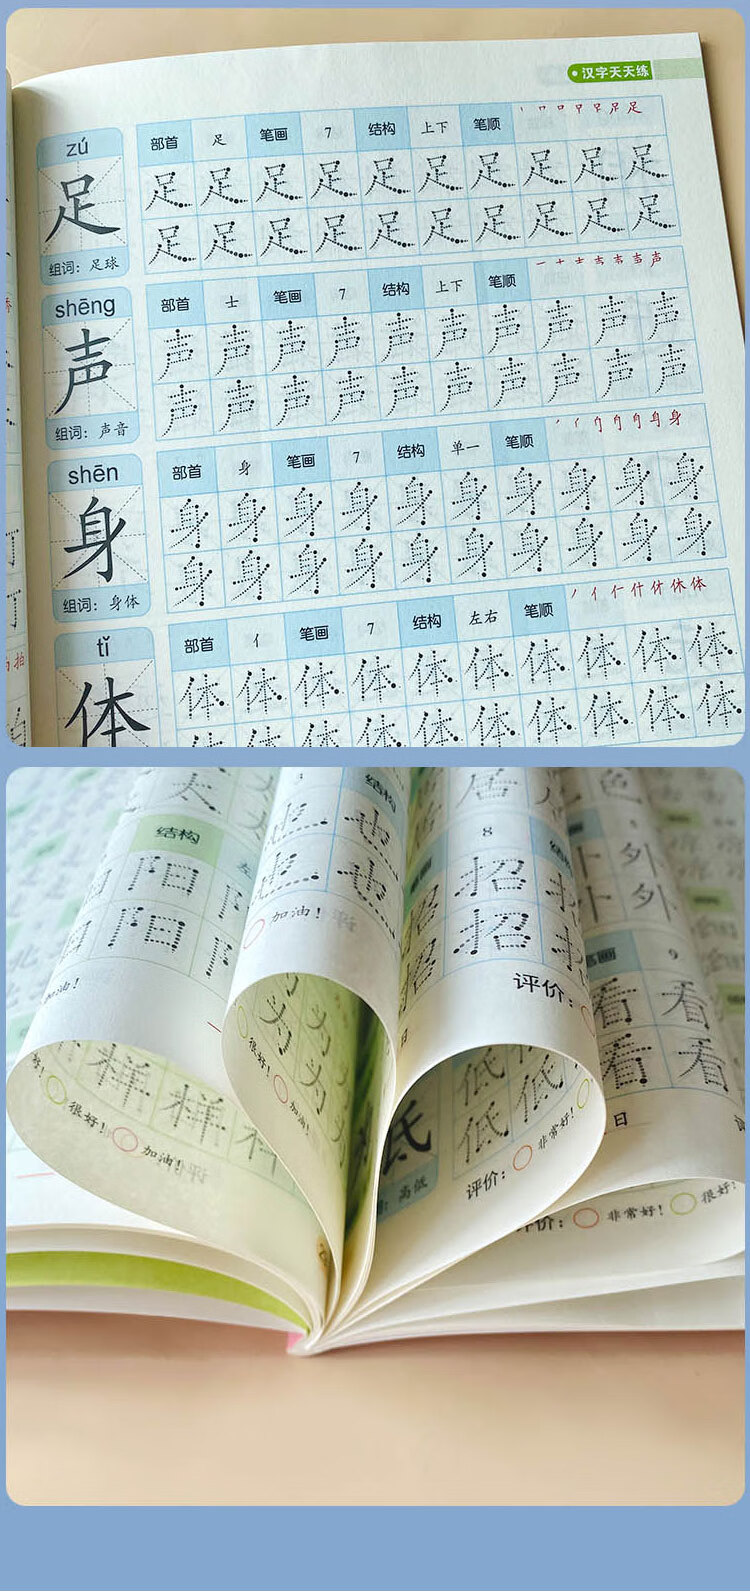 汉字天天练
zú
部首 足 笔画 7 结构 上下 笔顺 丨 口 口 甲 早 足 足
足
足 足 足 足 足 足 足 足 足 足
足 足 足 足 足 足 足 足 足 足
组词：足球
shēng
部首 士 笔画 7 结构 上下 笔顺
声
声 声 声 声 声 声 声 声 声 声
声 声 声 声 声 声 声 声 声 声
组词：声音
shēn
部首 身 笔画 7 结构 单一 笔顺
身
身 身 身 身 身 身 身 身 身 身
身 身 身 身 身 身 身 身 身 身
组词：身体
tǐ
部首 亻 笔画 7 结构 左右 笔顺
体
体 体 体 体 体 体 体 体 体 体
体 体 体 体 体 体 体 体 体 体
拍
太
结构
阳
阳
加油！
样 样
很好！ 加油！
3 结构
也
也
加油！
为 为
为
很好！ 加油！
居
8 结构
招
招
评价：
低
低 低
低 低
高低
评价： 非常好！
色
5
外
外
笔画 9
看 看
看 看
日
评价： 非常好！ 很好！